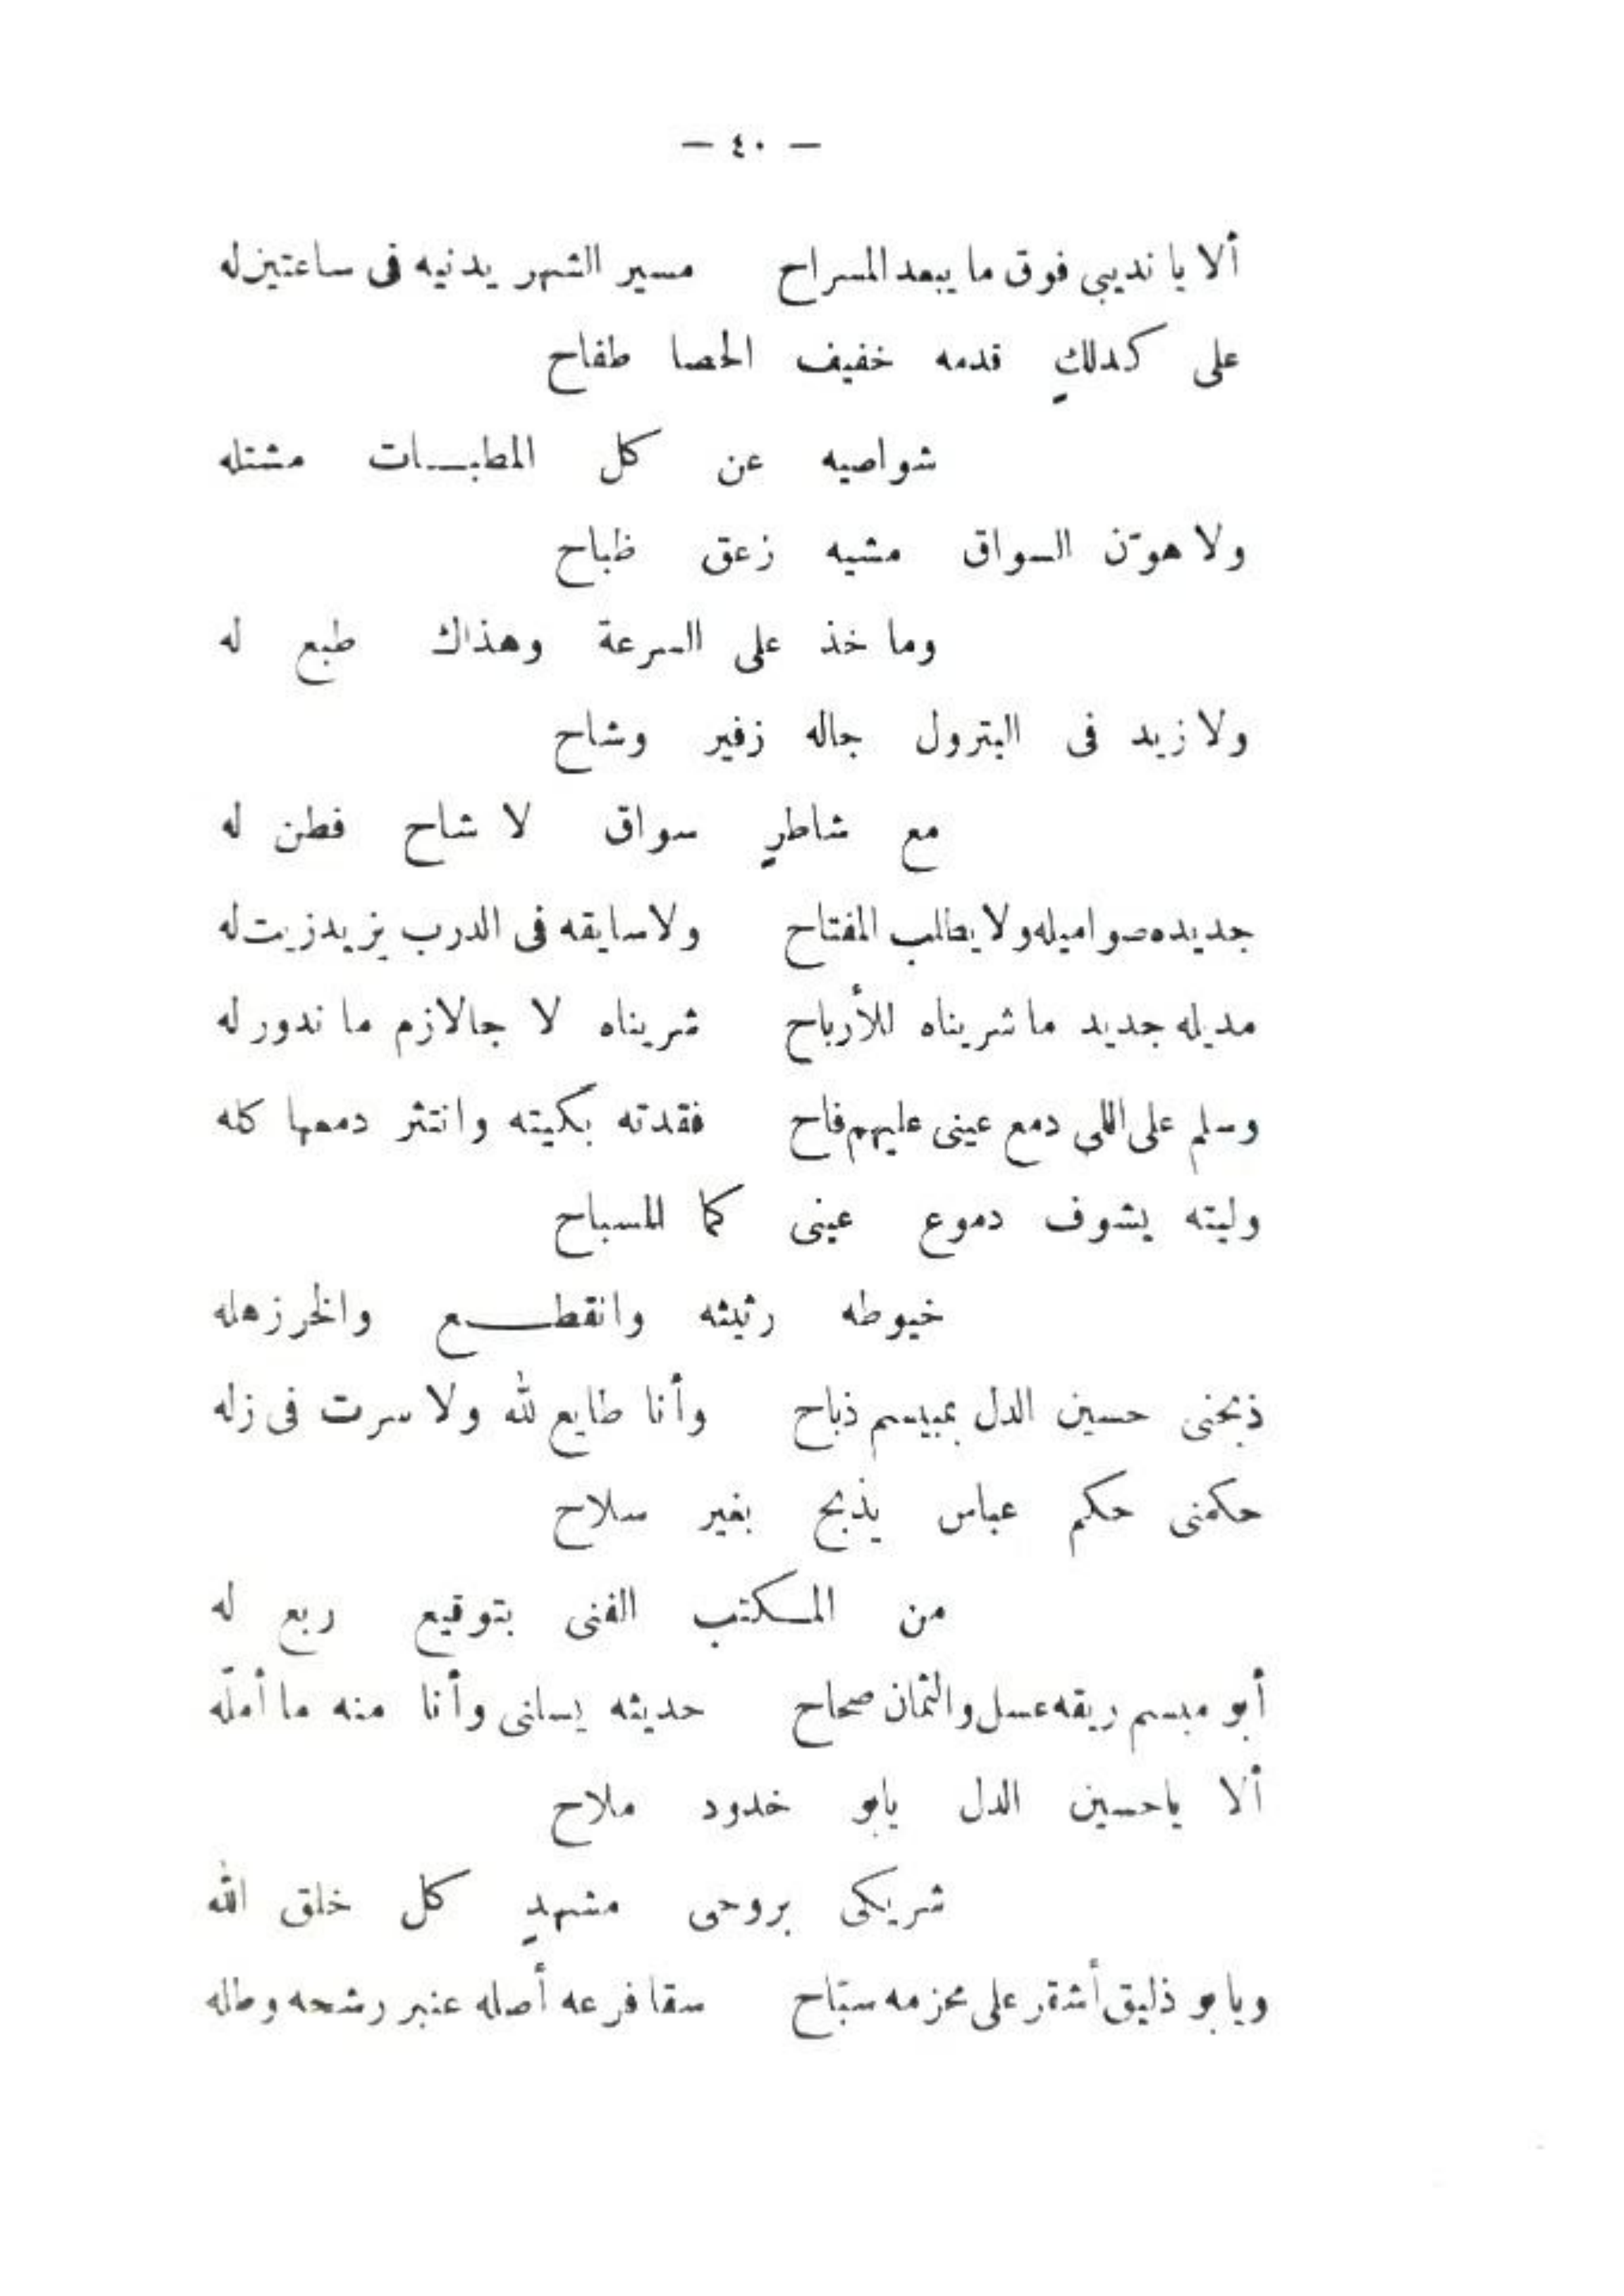 — ٤٠ —
ألا يا نديبى فوق ما يبعد المسراح مسير الشهر يدنيه فى ساعتين له
على كدلكٍ قدمه خفيف الحصا طفاح
شواصيه عن كل المطبـات مشتله
ولا هوّن السواق مشيه زعق ظباح
وما خذ على السرعة وهذاك طبع له
ولا زيد فى البترول جاله زفير وشاح
مع شاطرٍ سواق لا شاح فطن له
جديده صواميله ولا يطالب المفتاح ولا سايقه فى الدرب يزيد زيت له
مديله جديد ما شريناه للأرباح شريناه لا جا لازم ما ندور له
وسلم على اللى دمع عينى عليهم فاح فقدته بكيته وانتثر دمعها كله
وليته يشوف دموع عينى كما المسباح
خيوطه رثيثه وانقطـــع والخرز هله
ذبحنى حسين الدل بمبيسم ذباح وأنا طايع لله ولا سرت فى زله
حكمنى حكم عباس يذبح بغير سلاح
من المـكتب الفنى بتوقيع ربع له
أبو مبسم ريقه عسل والثمان صحاح حديثه يسلنى وأنا منه ما أملّه
ألا ياحسين الدل يابو خدود ملاح
شريكى بروحى مشهدٍ كل خلق الله
ويابو ذليق أشقر على محزمه سبّاح سقا فرعه أصله عنبر رشحه وطله